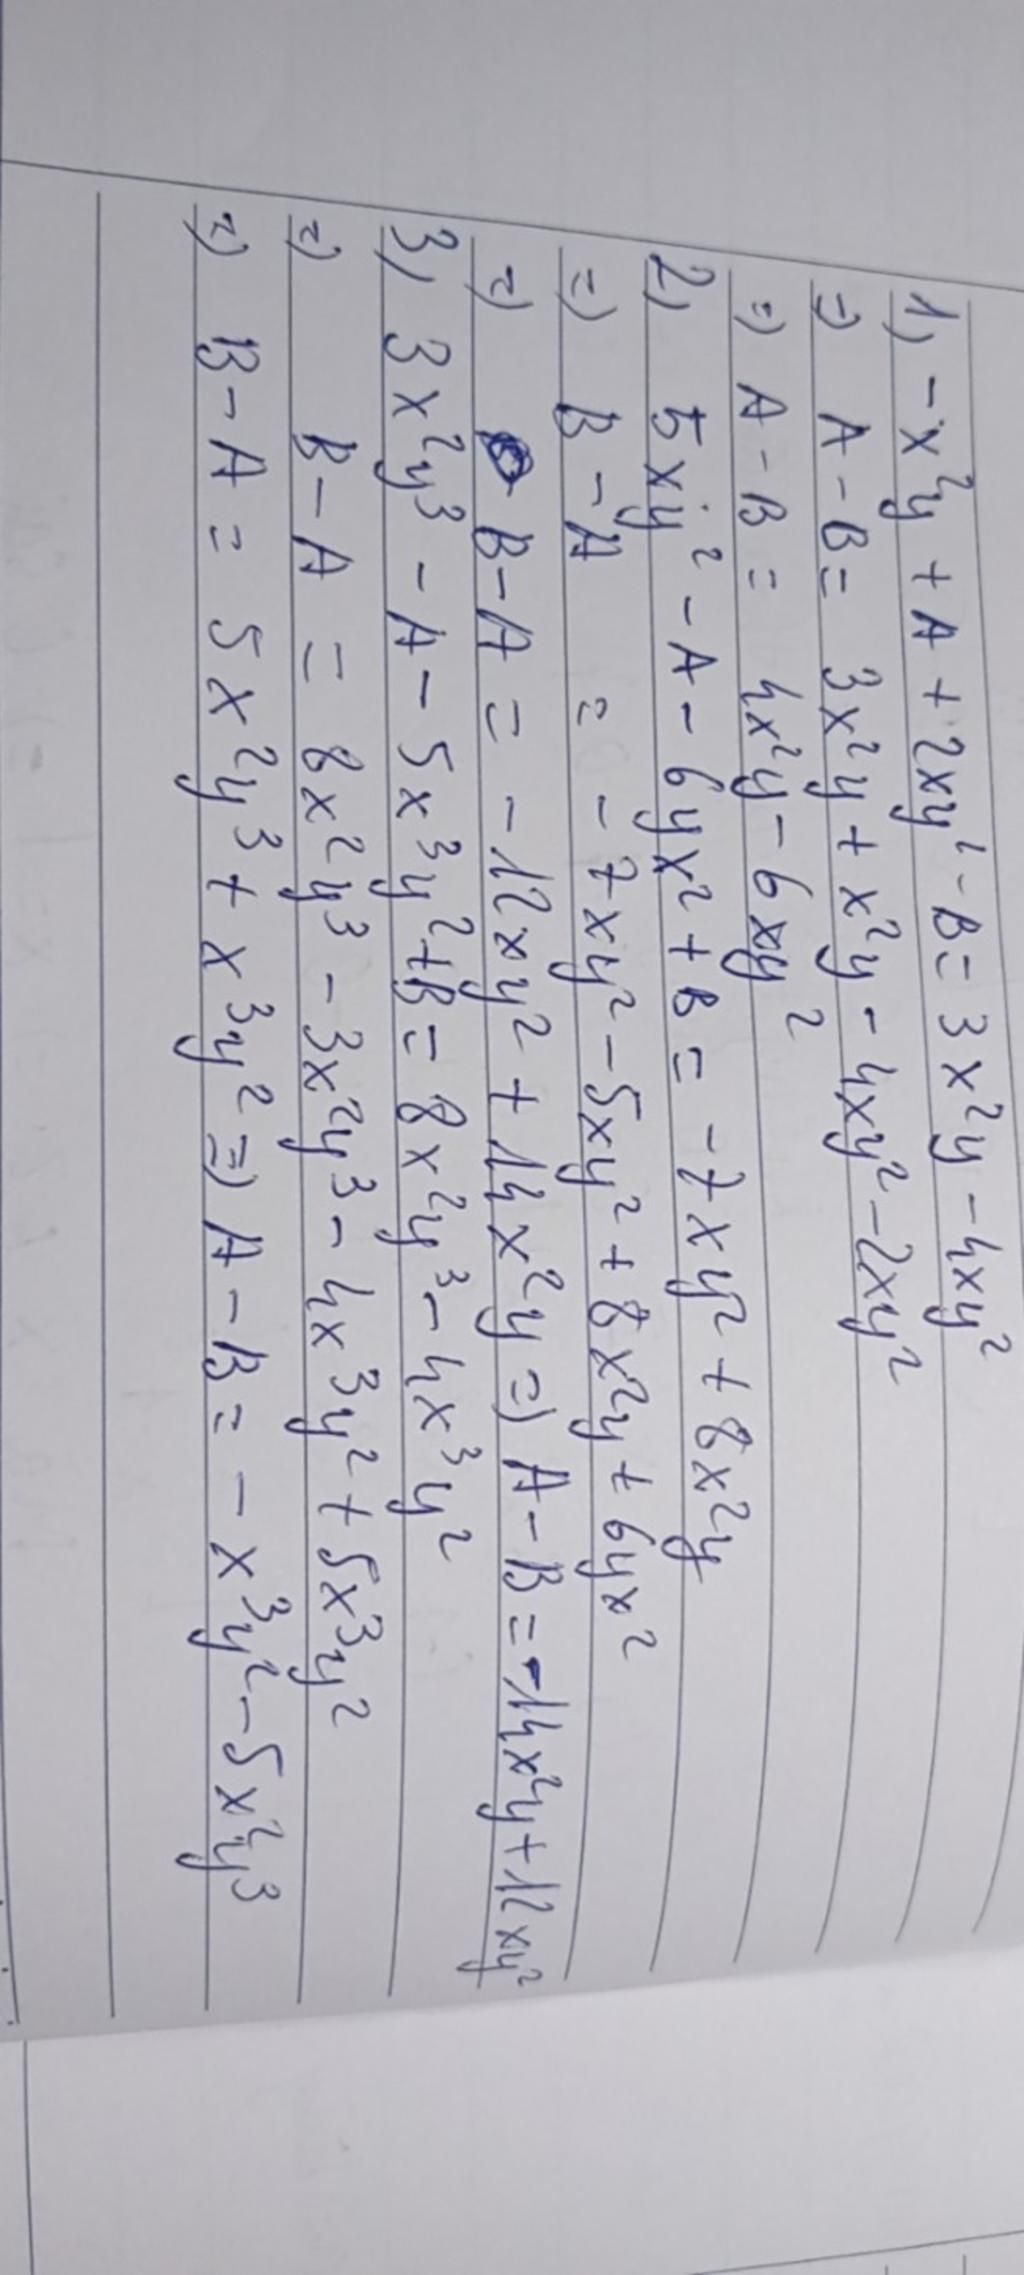 1, -x²y + A + 2xy² - B = 3x²y - 4xy²
=) A - B = 3x²y + x²y - 4xy² - 2xy²
=) A - B = 4x²y - 6xy²
2, 5xy² - A - 6yx² + B = -7xy² + 8x²y
=) B - A = -7xy² - 5xy² + 8x²y + 6yx²
=) B - A = -12xy² + 14x²y =) A - B = -14x²y + 12xy²
3, 3x²y³ - A - 5x³y² + B = 8x²y³ - 4x³y²
=) B - A = 8x²y³ - 3x²y³ - 4x³y² + 5x³y²
=) B - A = 5x²y³ + x³y² =) A - B = -x³y² - 5x²y³